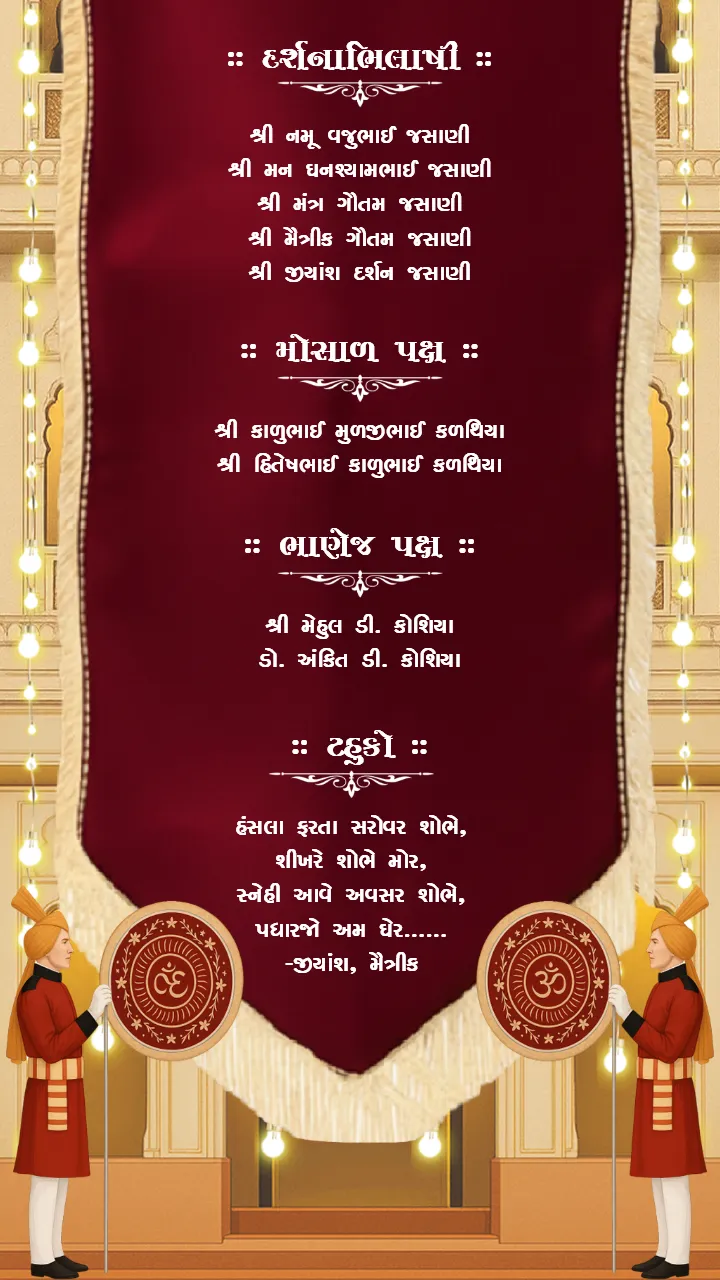 :: દર્શનાભિલાષી ::
શ્રી નમૂ વજુભાઈ જસાણી
શ્રી મન ઘનશ્યામભાઈ જસાણી
શ્રી મંત્ર ગૌતમ જસાણી
શ્રી મૈત્રીક ગૌતમ જસાણી
શ્રી જીયાંશ દર્શન જસાણી
:: મોસાળ પક્ષ ::
શ્રી કાળુભાઈ મુળજીભાઈ કળથિયા
શ્રી હિતેષભાઈ કાળુભાઈ કળથિયા
:: ભાણેજ પક્ષ ::
શ્રી મેહુલ ડી. કોશિયા
ડો. અંકિત ડી. કોશિયા
:: ટહુકો ::
હંસલા ફરતા સરોવર શોભે,
શીખરે શોભે મોર,
સ્નેહી આવે અવસર શોભે,
પધારજો અમ ઘેર......
-જીયાંશ, મૈત્રીક
ॐ ॐ